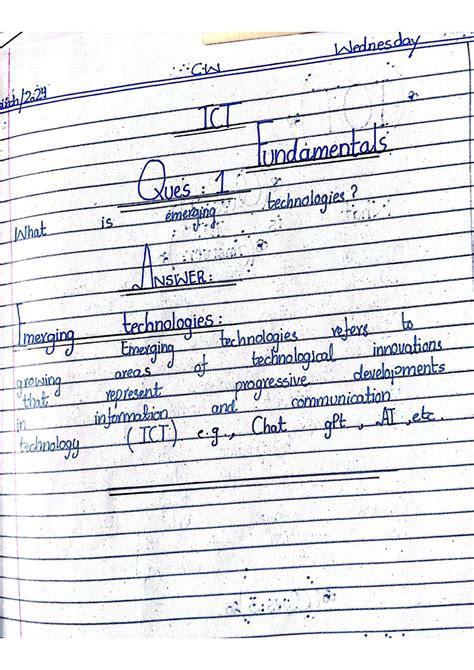 Wednesday
C.W
/2024
ICT
Fundamentals
Ques : 1
What is emerging technologies ?
ANSWER:
Emerging technologies :
Emerging technologies refers to
growing areas of technological innovations
that represent progressive developments
in information and communication
technology (ICT) e.g., Chat gpt , AI ,etc.